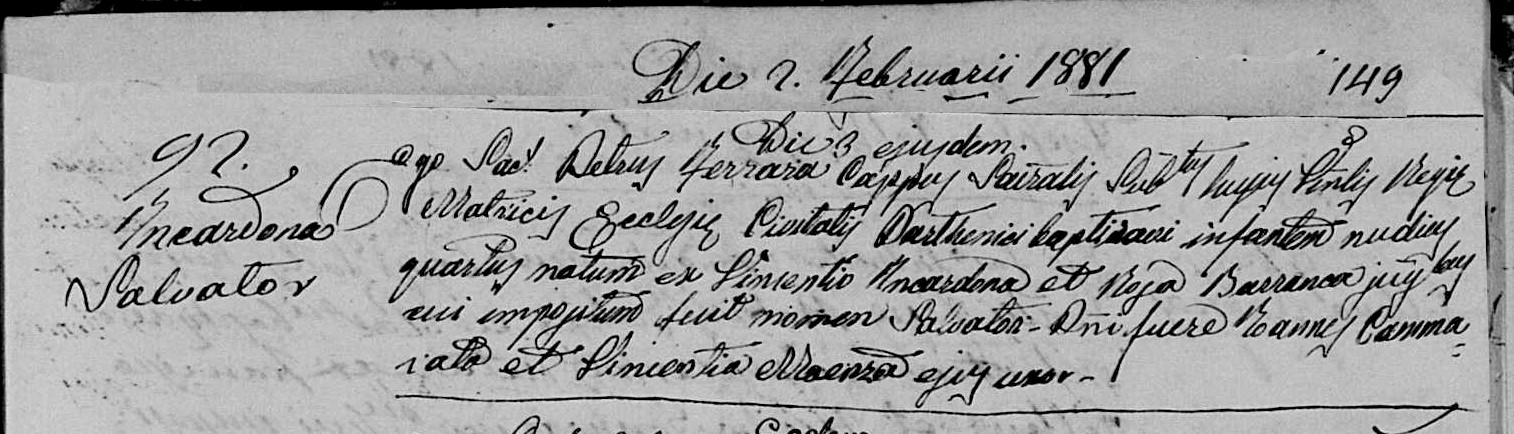 Die 2. Februarii 1881 149
Die 3 ejusdem.
92. Ego Sac. Petrus Ferrara Cappus Sacralis Sub hujus Regie
Incardona Matricis Ecclesie Civitatis Parthenici baptizavi infantem nudius
Salvator quartus natum ex Vincentio Incardona et Rosa Barranca jug
cui impositum fuit nomen Salvator - Pñi fuere Ioannes Camma
rata et Vincentia Maenza ejus uxor -